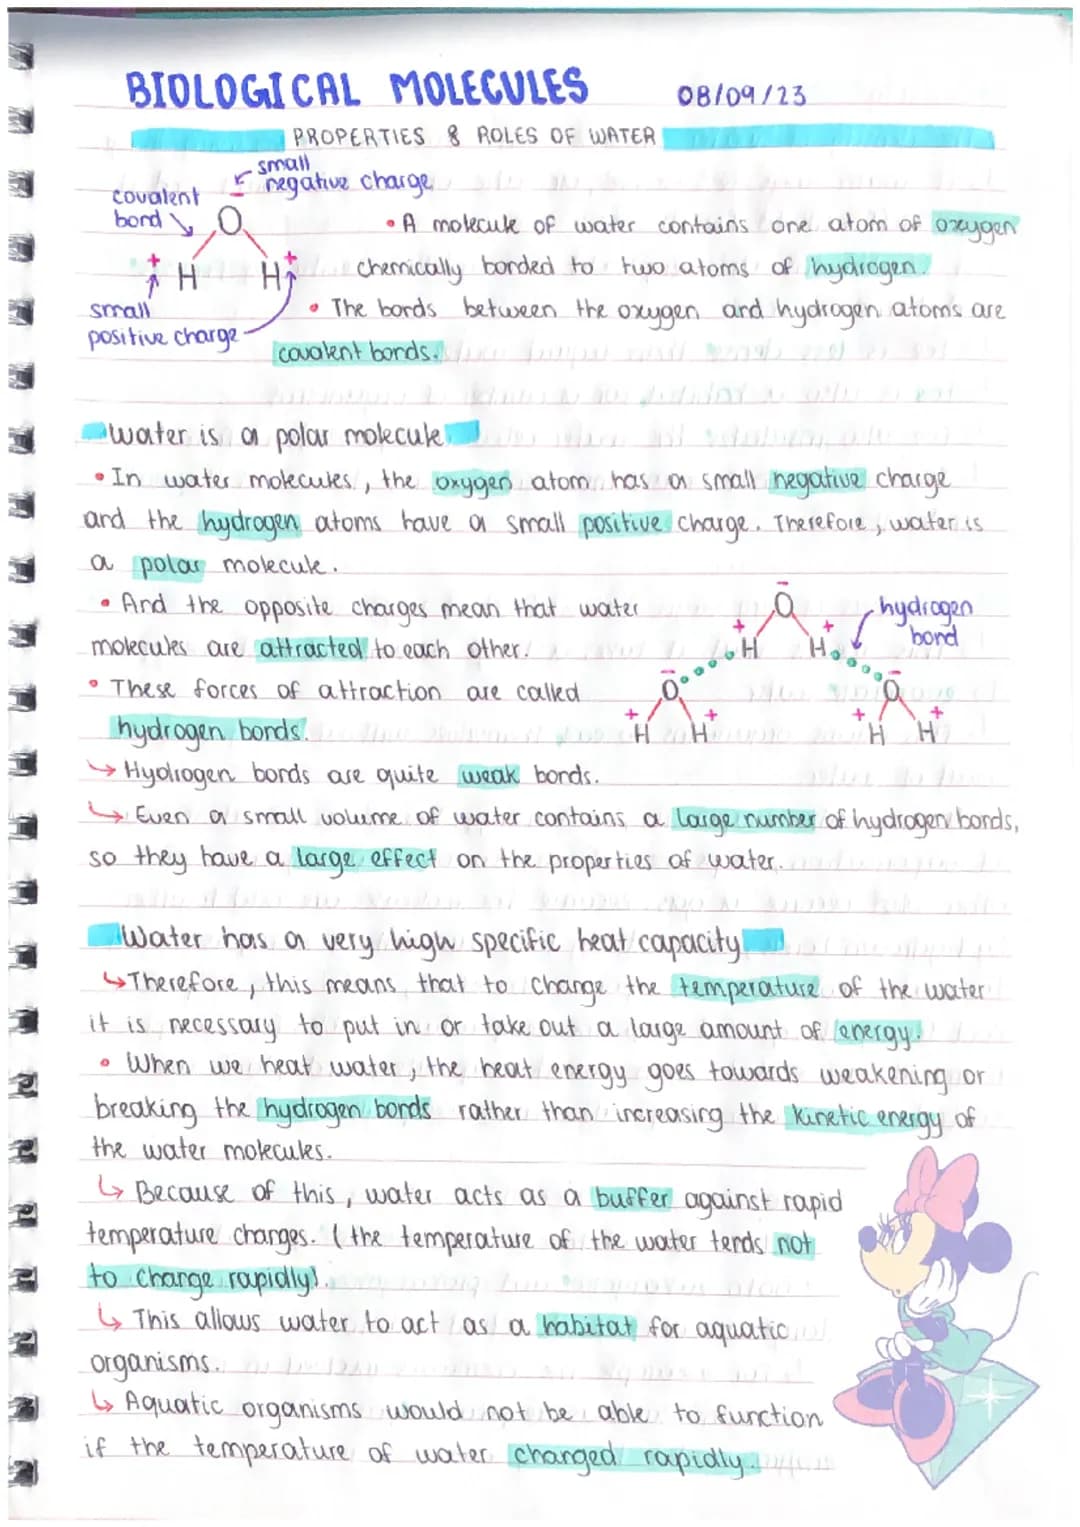 BIOLOGICAL MOLECULES 08/09/23
PROPERTIES & ROLES OF WATER
small
negative charge
covalent
bond
O
H H
small
positive charge
• A molecule of water contains one atom of oxygen
chemically bonded to two atoms of hydrogen.
• The bonds between the oxygen and hydrogen atoms are
covalent bonds.
Water is a polar molecule
• In water molecules, the oxygen atom has a small negative charge
and the hydrogen atoms have a small positive charge. Therefore, water is
a polar molecule.
• And the opposite charges mean that water
molecules are attracted to each other.
• These forces of attraction are called
hydrogen bonds.
O
H H
hydrogen
bond
O O
H H H H
↳ Hydrogen bonds are quite weak bonds.
↳ Even a small volume of water contains a large number of hydrogen bonds,
so they have a large effect on the properties of water.
Water has a very high specific heat capacity
↳ Therefore, this means that to change the temperature of the water
it is necessary to put in or take out a large amount of energy.
• When we heat water, the heat energy goes towards weakening or
breaking the hydrogen bonds rather than increasing the kinetic energy of
the water molecules.
↳ Because of this, water acts as a buffer against rapid
temperature changes. (the temperature of the water tends not
to change rapidly).
↳ This allows water to act as a habitat for aquatic
organisms.
↳ Aquatic organisms would not be able to function
if the temperature of water changed rapidly.